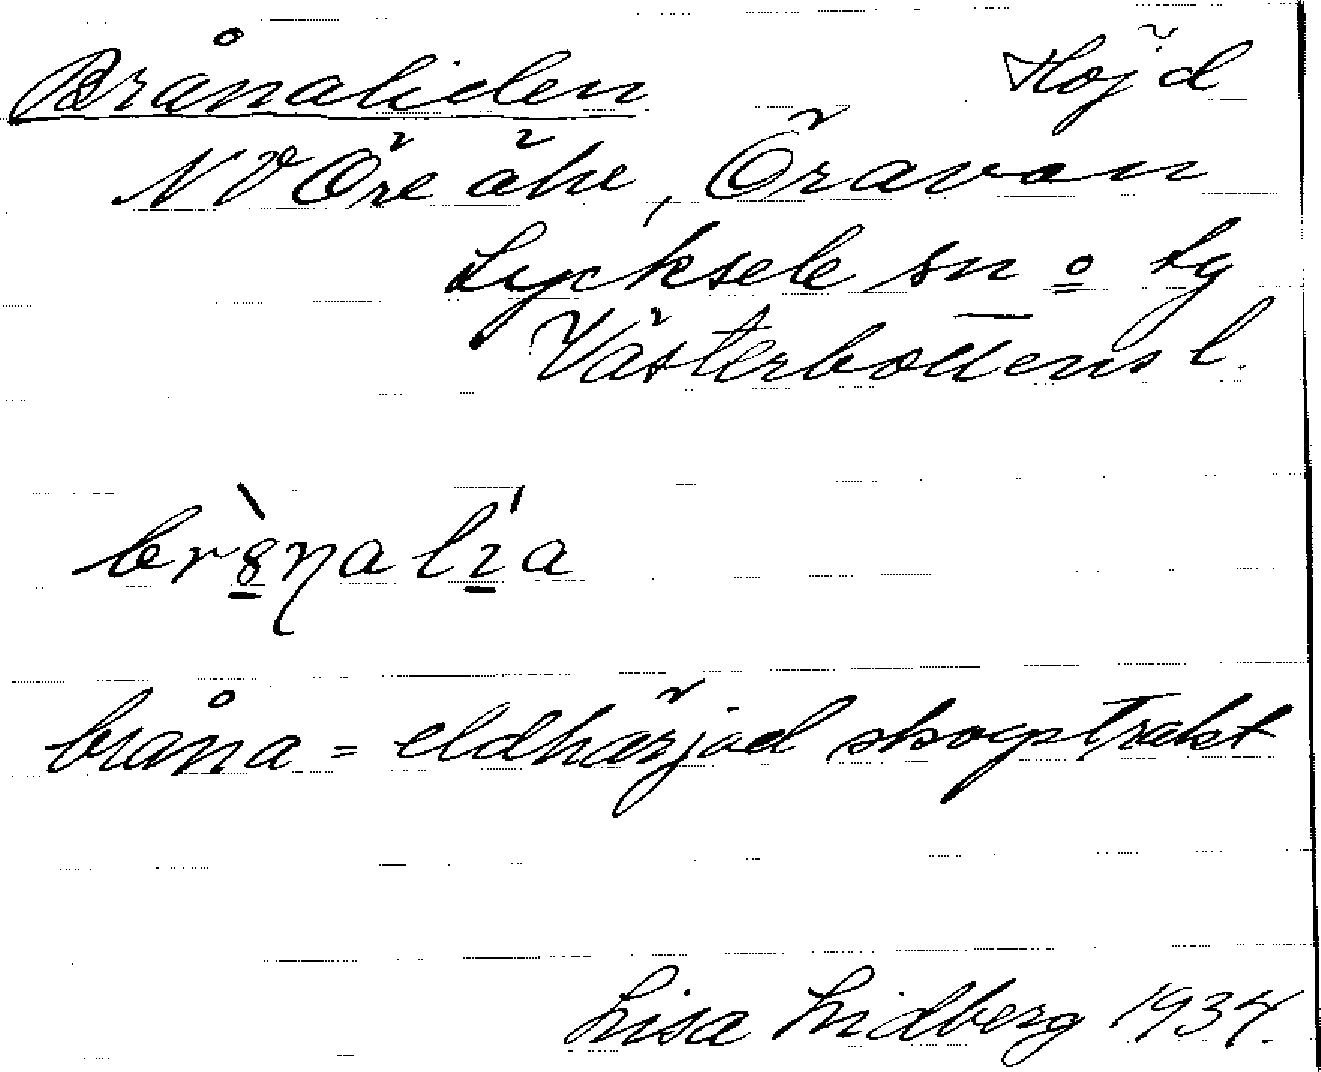 Brånaliden Höjd
NV Öre älv, Öravan
Lycksele sn o. lg
Västerbottens l.
bränalia
bråna = eldhärjad skogstrakt
Lisa Lidberg 1934.